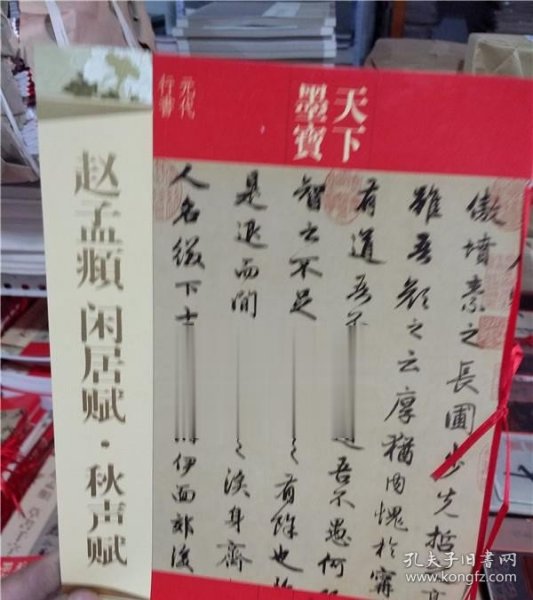 天下
墨寶
元代
行書
赵孟頫 闲居赋·秋声赋
傲墳素之長圃步先哲高
雖吾顏之云厚猶内愧於寧
有道吾不 吾不愚何
智之不足 之有餘也
是退而閒 之涘身齊
人名綴下士 伊面郊後
孔夫子旧书网
www.kongfz.com